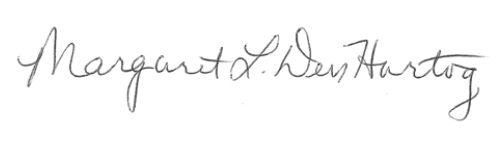 Margaret L. Den Hartog